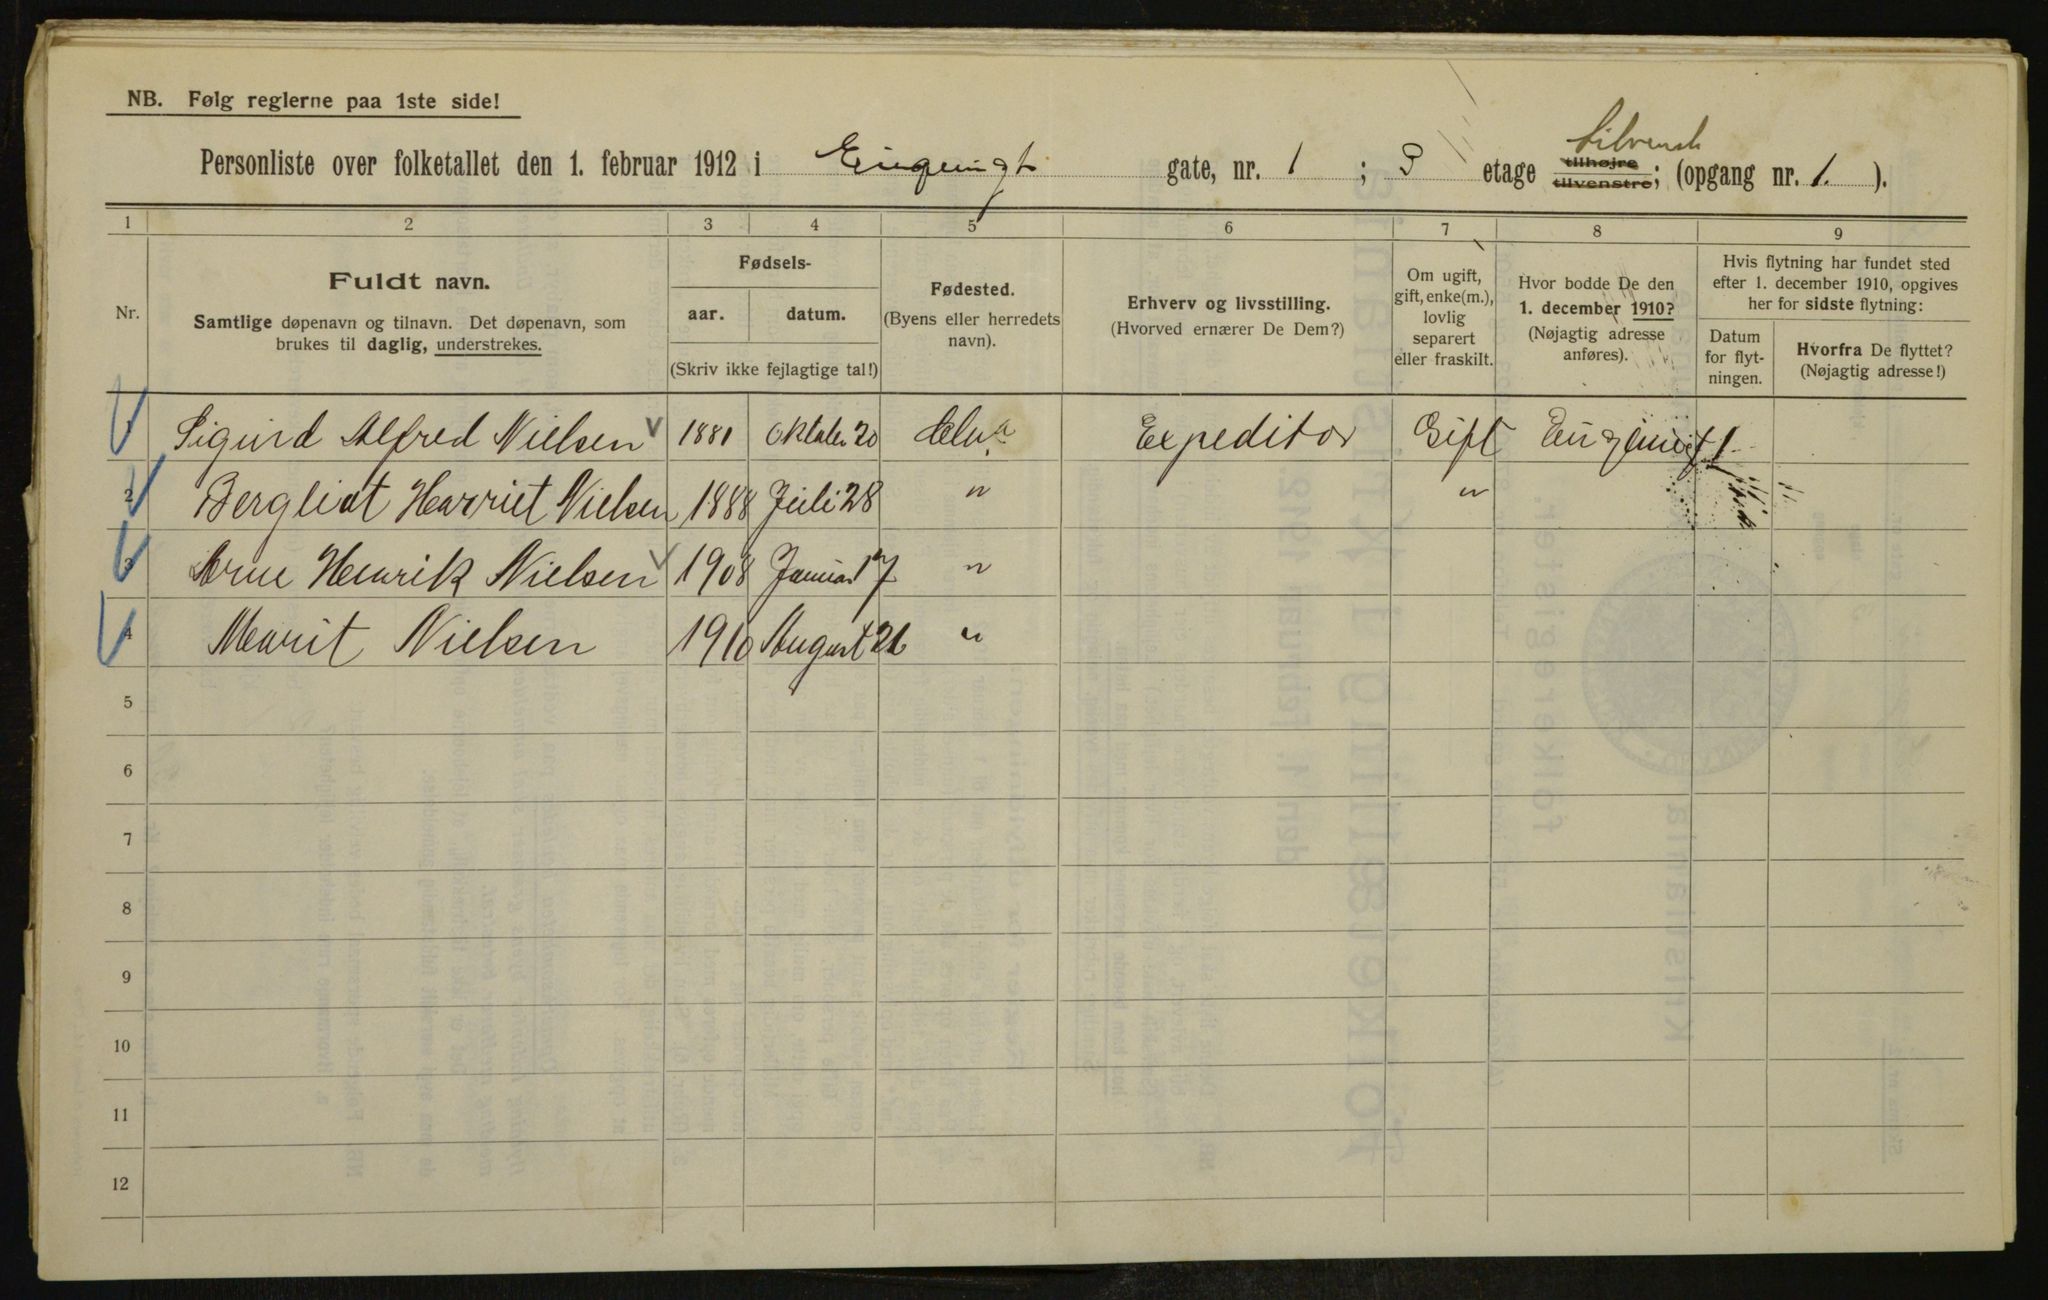 NB. Følg reglerne paa 1ste side!
Personliste over folketallet den 1. februar 1912 i Eugenigt gate, nr. 1 ; 3 etage tilhøjre tilvenstre; (opgang nr. 1. ).
1 2 3 4 5 6 7 8 9
Nr.
Fuldt navn.
Samtlige døpenavn og tilnavn. Det døpenavn, som
brukes til daglig, understrekes.
Fødsels-
aar. datum.
(Skriv ikke fejlagtige tal!)
Fødested.
(Byens eller herredets
navn).
Erhverv og livsstilling.
(Hvorved ernærer De Dem?)
Om ugift,
gift, enke(m.),
lovlig
separert
eller fraskilt.
Hvor bodde De den
1. december 1910?
(Nøjagtig adresse
anføres).
Hvis flytning har fundet sted
efter 1. december 1910, opgives
her for sidste flytning:
Datum
for flyt-
ningen.
Hvorfra De flyttet?
(Nøjagtig adresse!)
1 Sigurd Alfred Nielsen 1881 Oktober 20 Expeditør Gift Eugenigt 1
2 Bergliot Harriet Nielsen 1888 Juli 28 " "
3 Arne Henrik Nielsen 1908 Januar 17 "
4 Marit Nielsen 1910 August 26 "
5
6
7
8
9
10
11
12